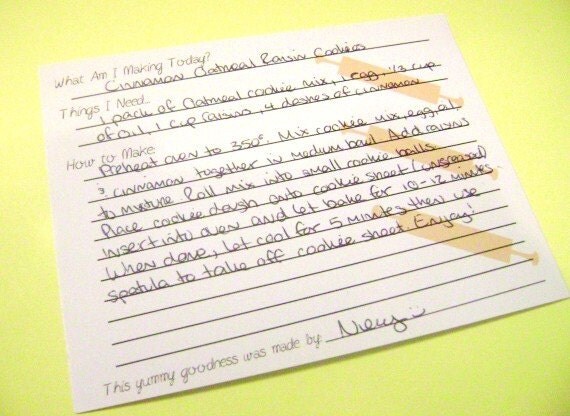 What Am I Making Today?
Cinnamon Oatmeal Raisin Cookies
Things I Need...
1 pack of Oatmeal cookie mix, 1 egg, 1/3 cup
of oil, 1 cup raisins, 4 dashes of cinnamon
How to Make
Preheat oven to 350°. Mix cookie mix, egg, oil
& cinnamon together in medium bowl Add raisins
to mixture Roll mix into small cookie balls
Place cookie dough onto cookie sheet (ungreased)
insert into oven and let bake for 10-12 minutes.
When done, let cool for 5 minutes then use
spatula to take off cookie sheet. Enjoy!
This yummy goodness was made by: